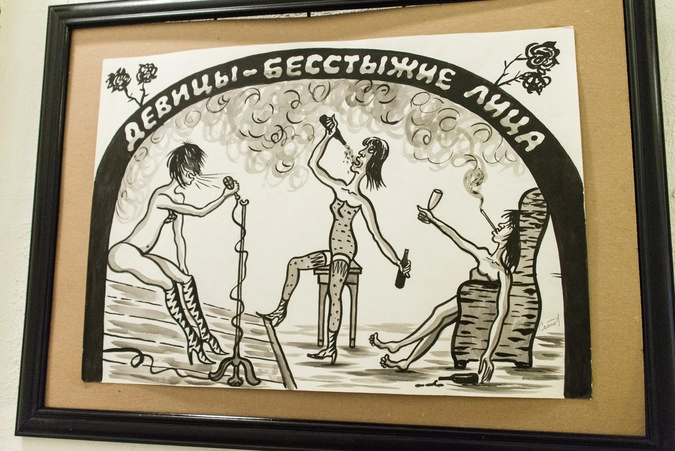 ДЕВИЦЫ-БЕССТЫЖИЕ ЛИЦА